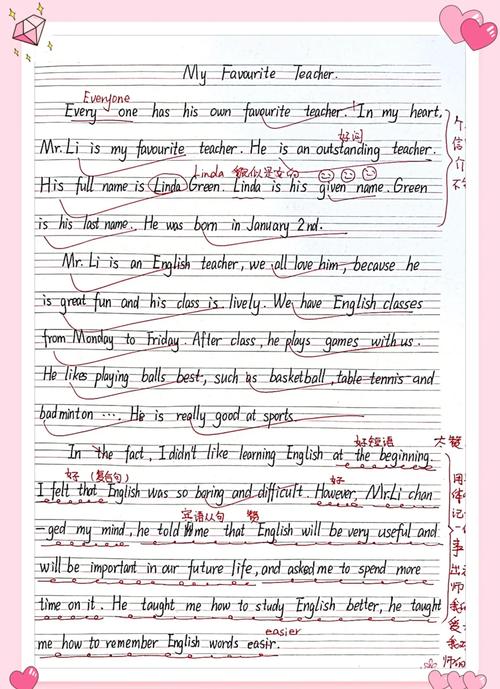 My Favourite Teacher.
Everyone
Every one has his own favourite teacher. In my heart,
Mr. Li is my favourite teacher. He is an outstanding teacher.
好词
Linda 貌似是女的
His full name is Linda Green. Linda is his given name. Green
is his last name. He was born in January 2nd.
Mr. Li is an English teacher, we all love him, because he
is great fun and his class is lively. We have English classes
from Monday to Friday. After class, he plays games with us.
He likes playing balls best, such as basketball, table-tennis and
badminton .... He is really good at sports.
好短语 大赞
In the fact, I didn't like learning English at the beginning.
好 (复合句) 好
I felt that English was so boring and difficult. However, Mr.Li chan
宾语从句 赞
-ged my mind, he told me that English will be very useful and
will be important in our future life, and asked me to spend more
time on it. He taught me how to study English better, he taught
easier
me how to remember English words easir.